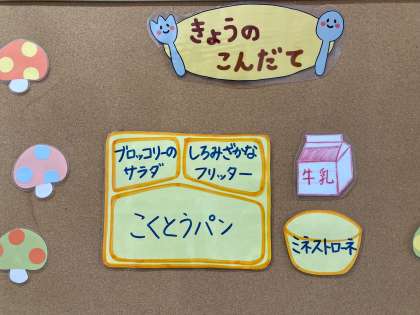 きょうの
こんだて
ブロッコリーの
サラダ
しろみざかな
フリッター
牛乳
こくとうパン
ミネストローネ